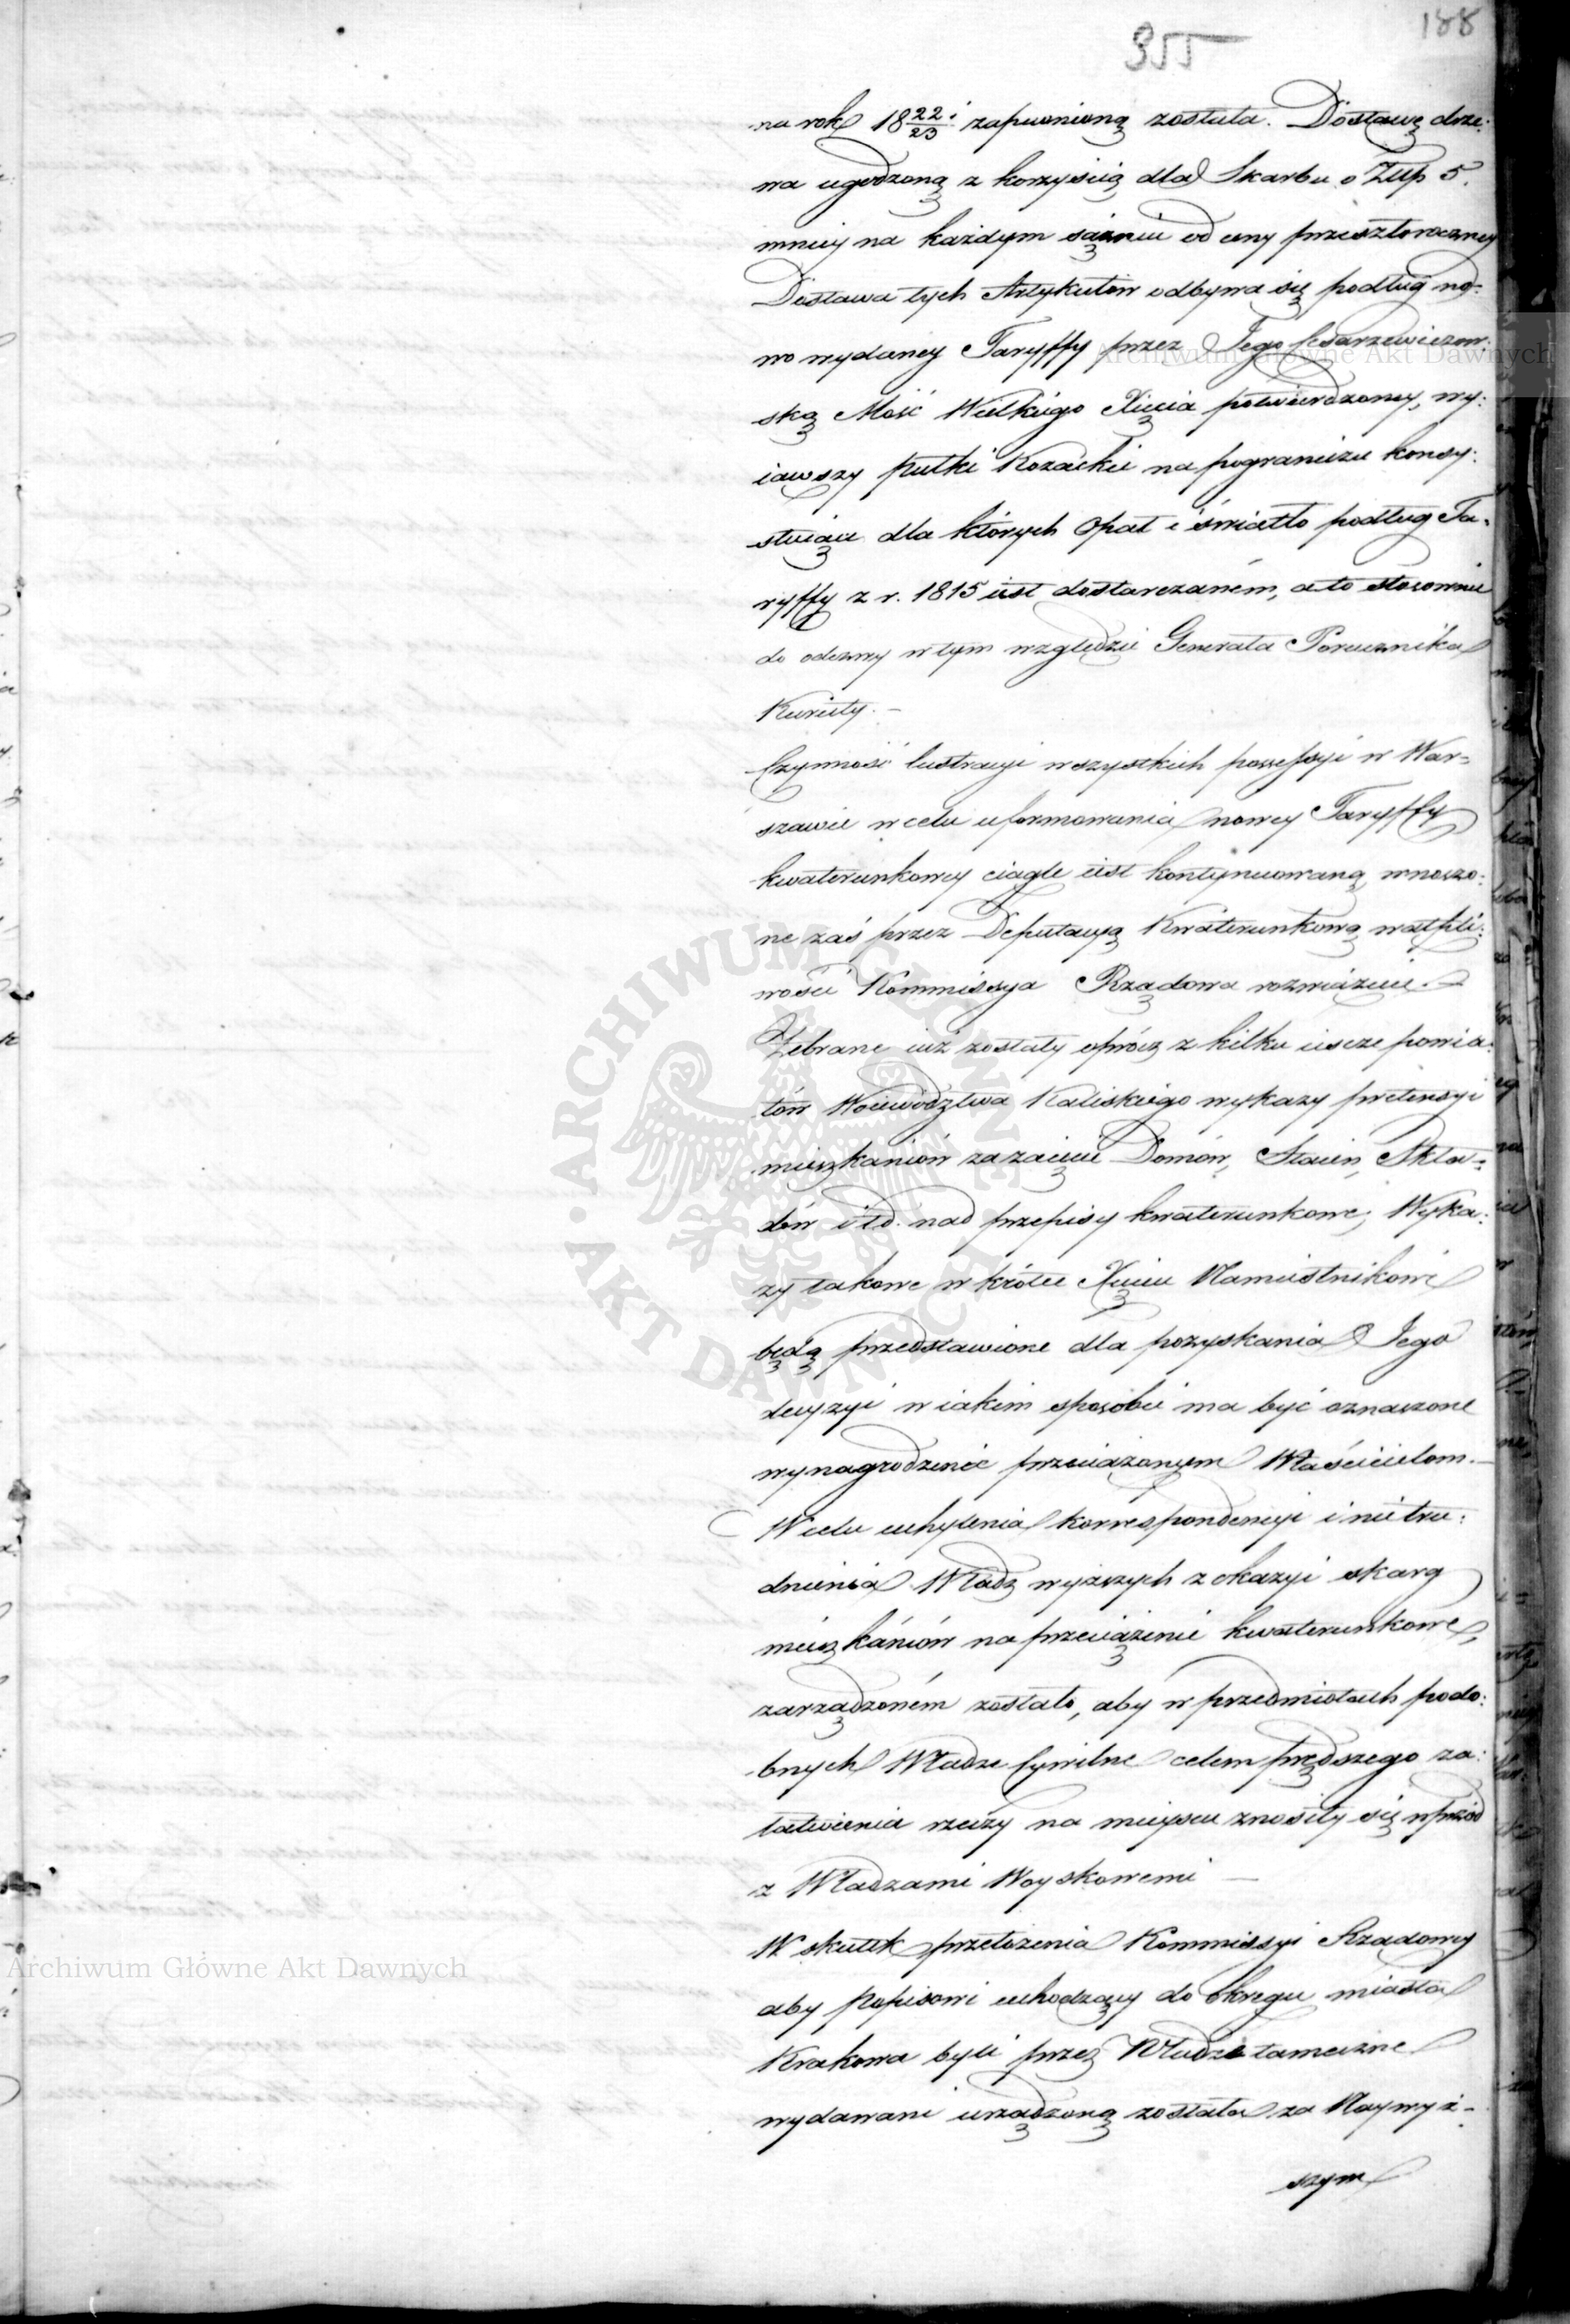 188
355
na rok 18 22/23 i zapewnioną została. Dostawę drze:
wa ugodzoną z korzyścią dla Skarbu o Złłp 5.
mniey na każdym sążniu od ceny przeszłoroczney
Dostawa tych Artykułów odbywa się podług no:
wo wydaney Taryffy przez Jego Cesarzewiczow:
ską Mość Wielkiego Xięcia potwierdzoney, wy:
iąwszy Pułki Kozackie na pograniczu konsy:
stuiące dla których Opał i światło podług Ta:
ryffy z r. 1815 iest dostarczaném, a to stosownie
do odezwy w tym względzie Generała Porucznika
Kuruty. —
Czynność lustracyi wszystkich possessyi w War=
szawie w celu uformowania nowey Taryffy
kwaterunkowey ciągle iest kontynuowaną, wnoszo:
ne zaś przez Deputacyą Kwaterunkową wątpli:
wości Kommissya Rządowa rozwiązuie.
Zebrane iuż zostały oprócz z kilku ieszcze powia:
tów Woiewództwa Kaliskiego wykazy pretensyi
mieszkańców za zaięcie Domów, Stacień, Skła=
dów itd. nad przepisy kwaterunkowe; Wyka:
zy takowe w krótce Xięciu Namiestnikowi
będą przedstawione dla pozyskania Jego
decyzyi w iakim sposobie ma być oznaczone
wynagrodzenie przeciążonym Właścicielom. —
W celu uchylenia korrespondencyi i nie tru:
dnienia Władz wyższych z okazyi skarg
mieszkańców na przeciążenie kwaterunkowe,
zarządzoném zostało, aby w przedmiotach podo:
bnych Władze Cywilne celem prędszego za:
łatwienia rzeczy na mieyscu znosiły się wprzód
z Władzami Woyskowemi —
W skutek przełożenia Kommissyi Rządowey
aby Popisowi uchodzący do Okręgu miasta
Krakowa byli przez Władze tameczne
wydawani urządzoną została za Naywyż-
szym
Archiwum Główne Akt Dawnych
Archiwum Główne Akt Dawnych
ARCHIWUM GŁÓWNE · AKT DAWNYCH ·